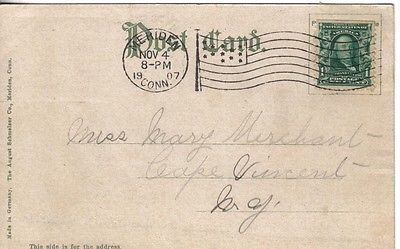 Post Card.
MERIDEN
NOV 4
8-PM
1907
CONN.
Miss Mary Merchant
Cape Vincent
N.Y.
Made in Germany. The August Schmelzer Co., Meriden, Conn.
This side is for the address.